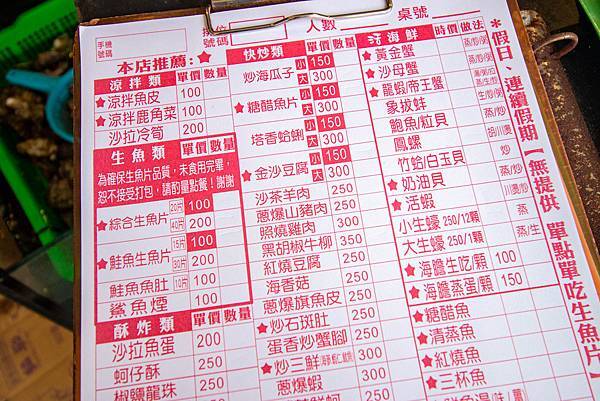 手機
號碼
號碼
人數
桌號
本店推薦：★
涼拌類 單價 數量
★涼拌魚皮 100
★涼拌鹿角菜 100
沙拉冷筍 200
生魚類
為確保生魚片品質，未食用完畢，
恕不接受打包，請酌量點餐！謝謝
★綜合生魚片 20片 100
40片 200
★鮭魚生魚片 15片 100
30片 200
鮭魚魚肚 10片 100
鯊魚煙 100
酥炸類 單價 數量
沙拉魚蛋 200
蚵仔酥 250
椒鹽龍珠 250
快炒類 單價 數量
炒海瓜子 小 150
大 300
★糖醋魚片 小 150
大 300
塔香蛤蜊 小 150
大 300
★金沙豆腐 小 150
大 300
沙茶羊肉 250
蔥爆山豬肉 250
照燒雞肉 300
黑胡椒牛柳 350
紅燒豆腐 250
海香菇 250
蔥爆旗魚皮 250
★炒石斑肚 250
蛋香炒蟹腳 250
★炒三鮮 300
蔥爆蝦 300
海鮮 時價 做法
★黃金蟹
★沙母蟹
★龍蝦/帝王蟹
象拔蚌
鮑魚/粒貝
鳳螺
竹蛤/白玉貝
★奶油貝
★活蝦
小生蠔 250/12顆
大生蠔 250/1顆
★海膽生吃/顆 100
★海膽蒸蛋/顆 150
★糖醋魚
★清蒸魚
★紅燒魚
★三杯魚
*假日、連續假期【無提供 單點單吃生魚片